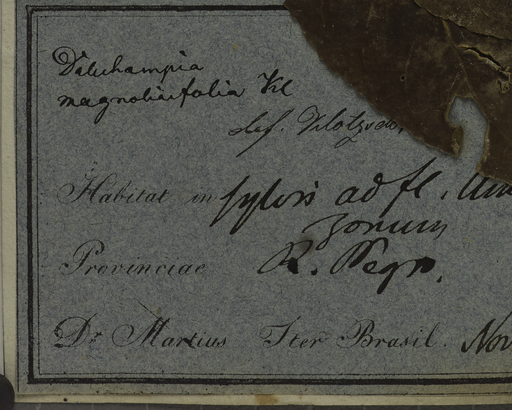 Dalechampia
magnoliaefolia Kl
det. Klotzsch.
Habitat in sylvis ad fl. Am
zonum
Provinciae R. Negr.
Dr. Martius Iter Brasil. Nov